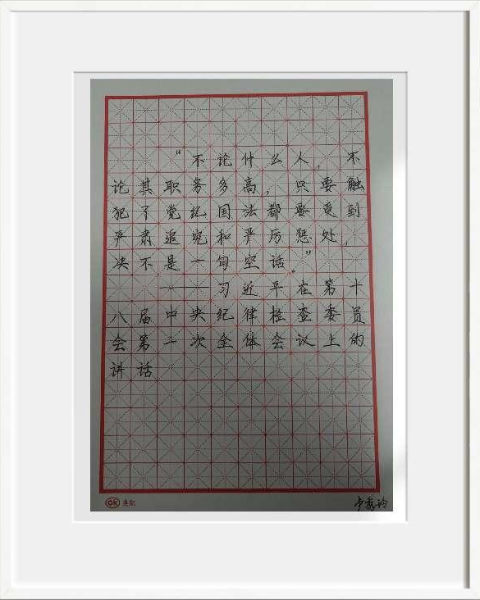 “不论什么人，不
论其职务多高，只要触
犯了党纪国法都要受到
严肃追究和严厉惩处，
决不是一句空话。”
——习近平在第十
八届中央纪律检查委员
会第二次全体会议上的
讲话